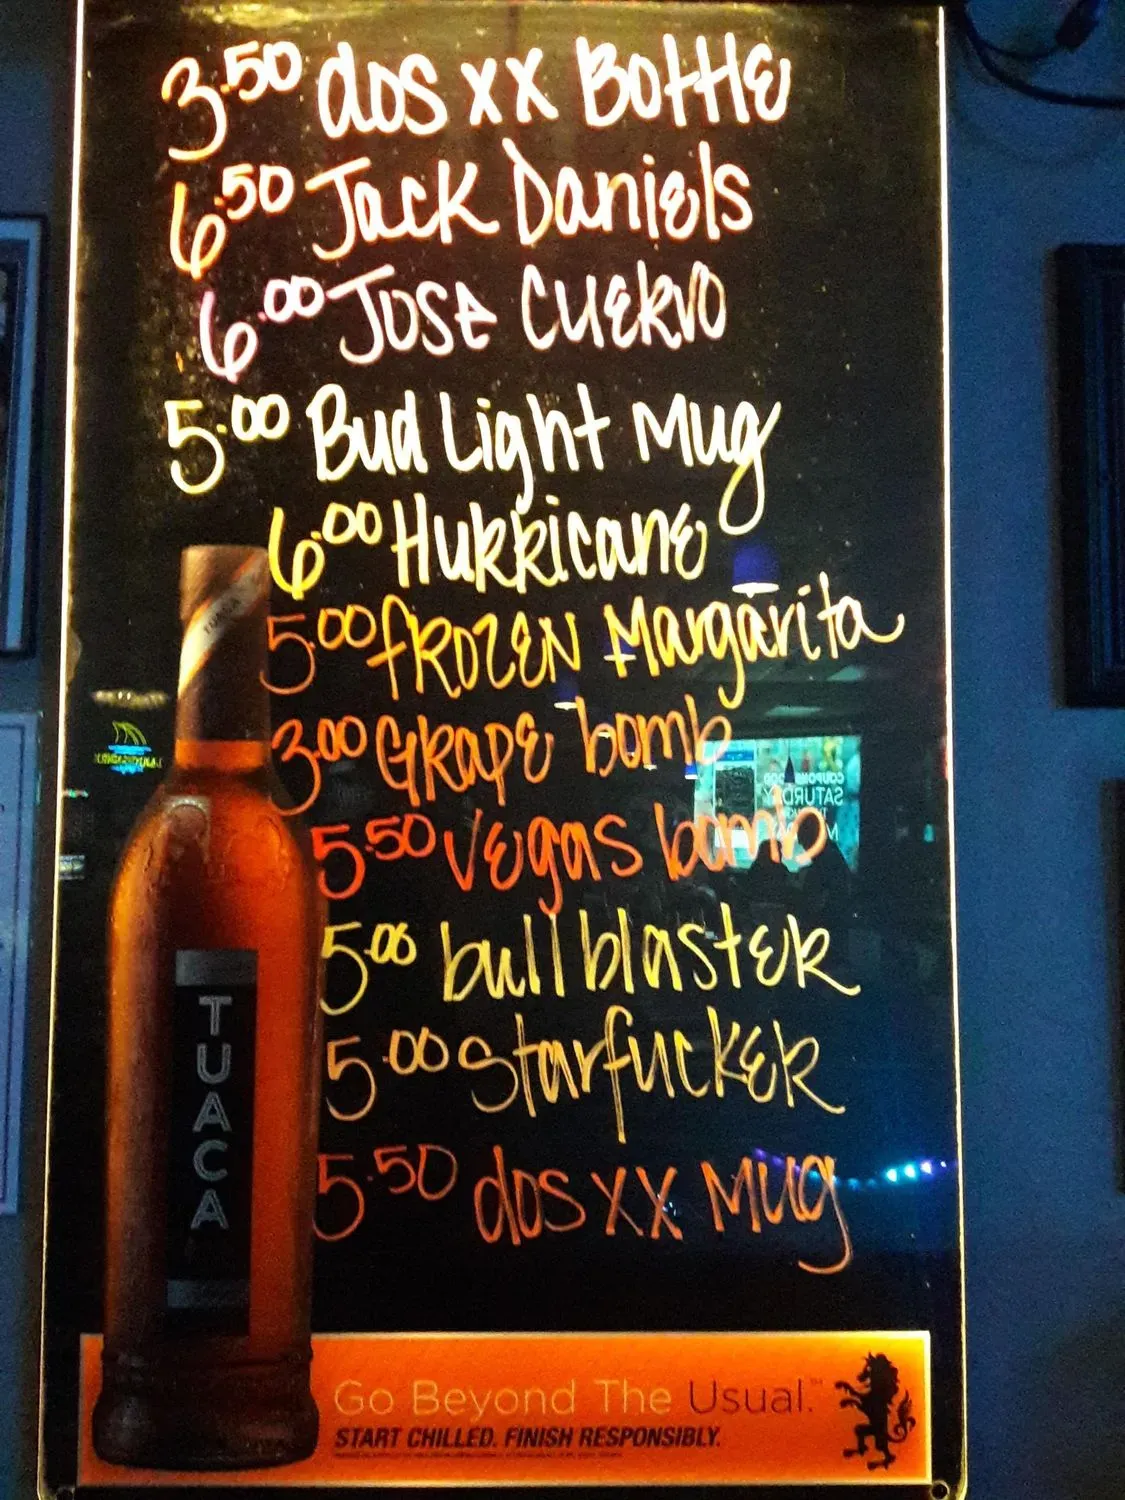 3.50 dos xx Bottle
6.50 Jack Daniels
6.00 Jose Cuervo
5.00 Bud Light Mug
6.00 Hurricane
5.00 frozen Margarita
3.00 Grape bomb
5.50 Vegas bomb
5.00 bull blaster
5.00 starfucker
5.50 dos xx Mug
TUACA
TUACA
COUPONS GOOD
SATURDAY
Go Beyond The Usual.™
START CHILLED. FINISH RESPONSIBLY.